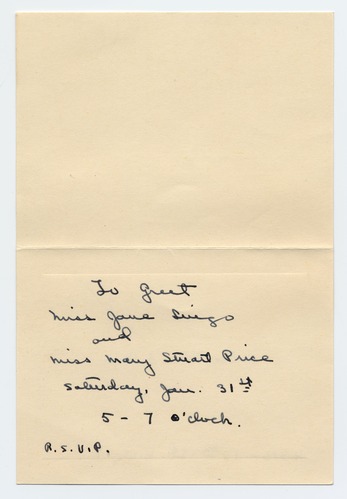 To Greet
Miss Jane Lingo
and
Miss Mary Stuart Price
Saturday, Jan. 31st
5 - 7 o'clock.
R.S.V.P.